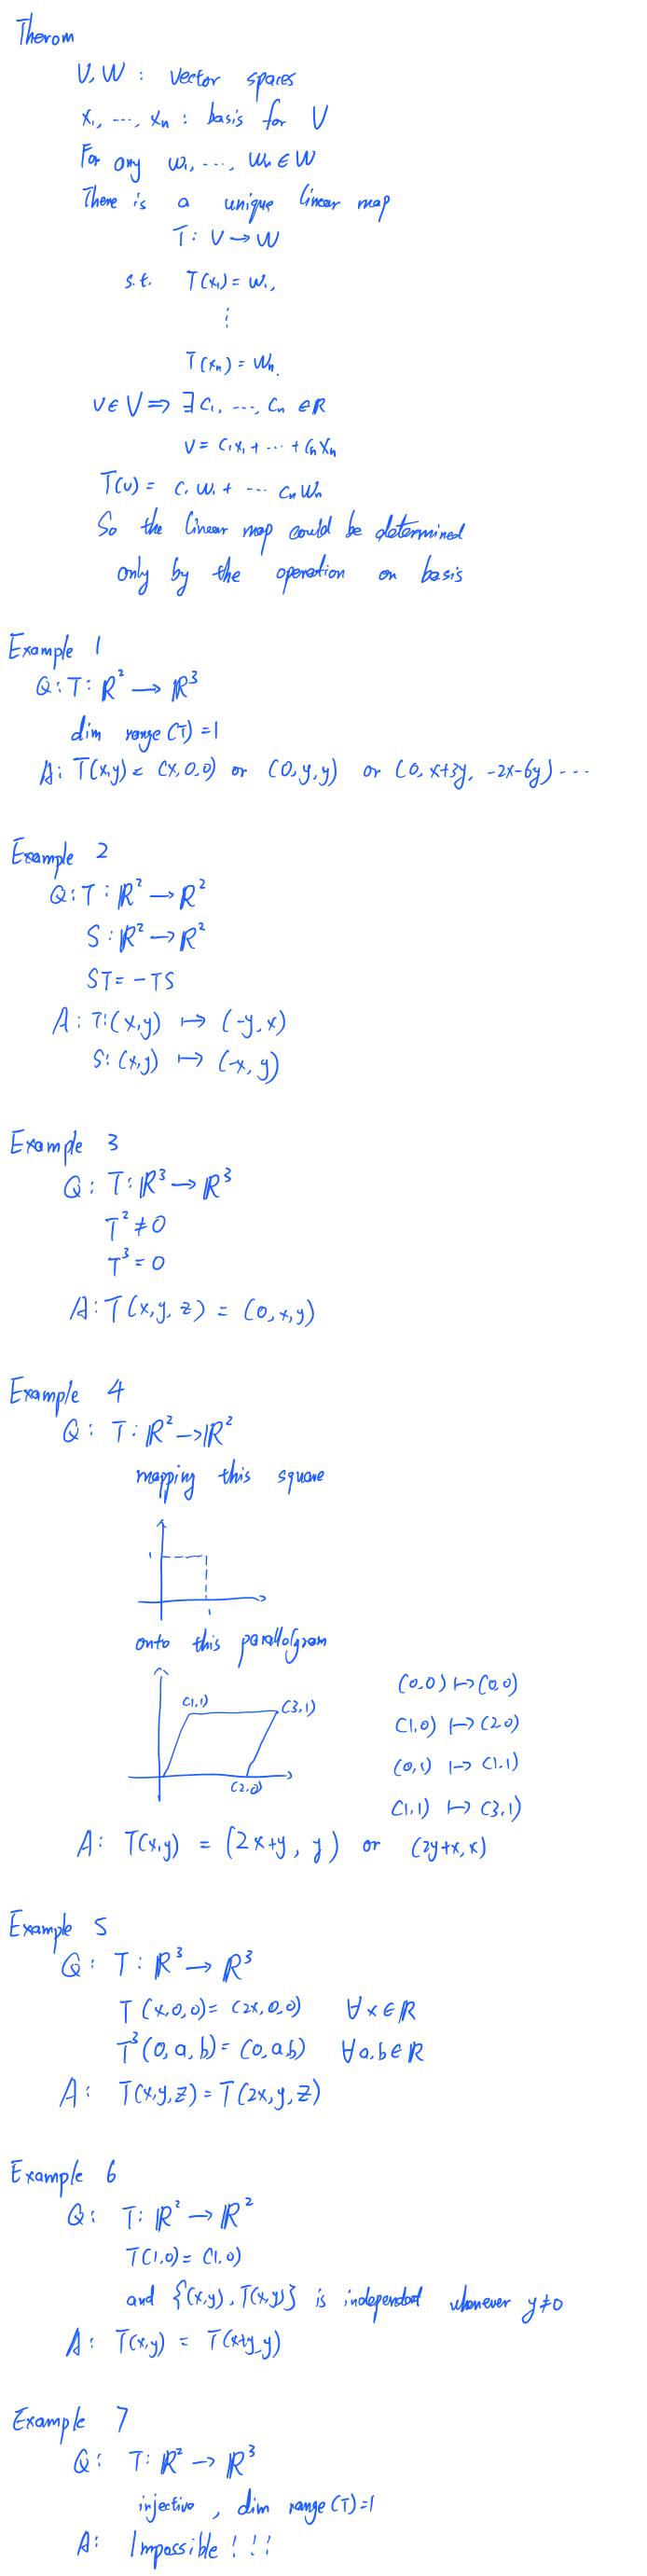 Therom
V, W : vector spaces
x₁, ..., xₙ : basis for V
For any w₁, ..., wₙ ∈ W
There is a unique linear map
T: V → W
s.t. T(x₁) = w₁,
⋮
T(xₙ) = wₙ.
v ∈ V ⇒ ∃ c₁, ..., cₙ ∈ ℝ
v = c₁x₁ + ... + cₙxₙ
T(v) = c₁w₁ + ... cₙwₙ
So the linear map could be determined
only by the operation on basis
Example 1
Q: T: ℝ² → ℝ³
dim range(T) = 1
A: T(x,y) = (x,0,0) or (0,y,y) or (0, x+3y, -2x-6y) ...
Example 2
Q: T: ℝ² → ℝ²
S: ℝ² → ℝ²
ST = -TS
A: T: (x,y) ↦ (-y,x)
S: (x,y) ↦ (-x,y)
Example 3
Q: T: ℝ³ → ℝ³
T² ≠ 0
T³ = 0
A: T(x,y,z) = (0,x,y)
Example 4
Q: T: ℝ² → ℝ²
mapping this square
1
1
onto this parallolgram
(1,1) (3,1)
(2,0)
(0,0) ↦ (0,0)
(1,0) ↦ (2,0)
(0,1) ↦ (1,1)
(1,1) ↦ (3,1)
A: T(x,y) = (2x+y, y) or (2y+x, x)
Example 5
Q: T: ℝ³ → ℝ³
T(x,0,0) = (2x,0,0) ∀x∈ℝ
T³(0,a,b) = (0,a,b) ∀a,b∈ℝ
A: T(x,y,z) = T(2x,y,z)
Example 6
Q: T: ℝ² → ℝ²
T(1,0) = (1,0)
and {(x,y), T(x,y)} is independent whenever y≠0
A: T(x,y) = T(x+y, y)
Example 7
Q: T: ℝ² → ℝ³
injective, dim range(T) = 1
A: Impossible!!!